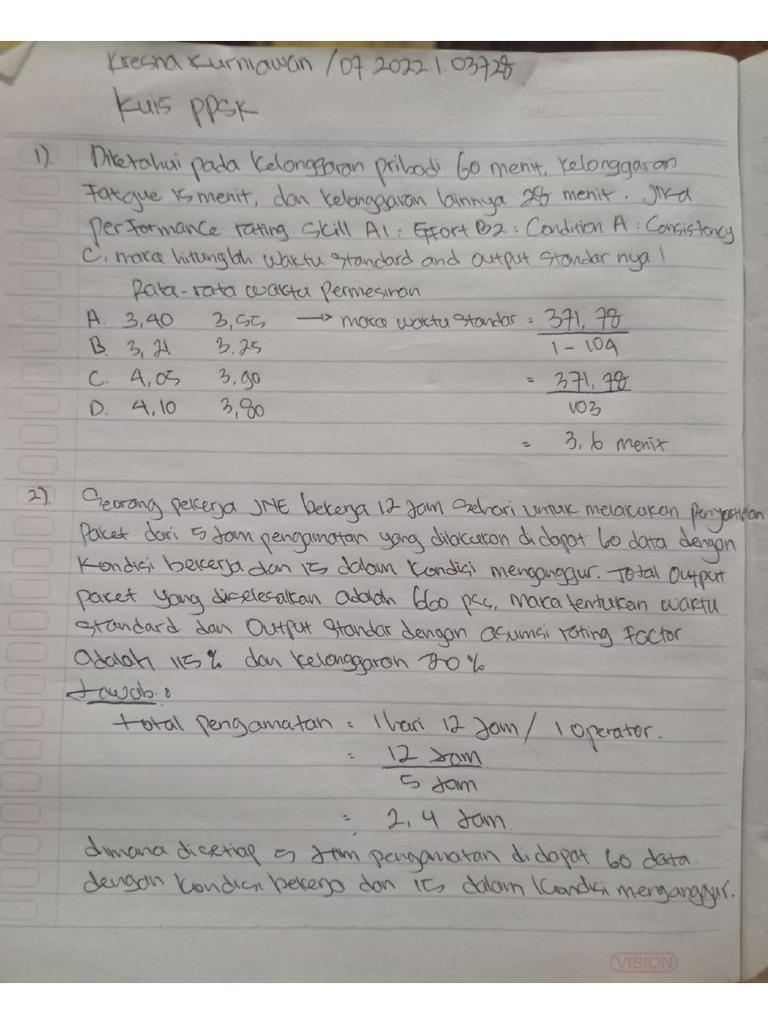 Kresna Kurniawan / 07.2022.1.03728
Kuis PPSK
1) Diketahui pada kelonggaran pribadi 60 menit, kelonggaran
Fatigue 15 menit, dan kelonggaran lainnya 28 menit. Jika
performance rating Skill A1 : Effort B2 : Condition A : Consistency
C. maka hitunglah waktu standard and output standar nya!
Rata-rata waktu permesinan
A. 3,40 3,55 → maka waktu standar = 371,78
B. 3,21 3.25 1 - 104
C. 4,05 3,90 = 371,78
D. 4,10 3,80 103
= 3,6 menit
2). Seorang pekerja JNE bekerja 12 jam sehari untuk melakukan penyortiran
paket dari 5 jam pengamatan yang dilakukan didapat 60 data dengan
kondisi bekerja dan 15 dalam kondisi menganggur. Total Output
paket yang diselesaikan adalah 660 psc, maka tentukan waktu
standard dan Output standar dengan asumsi rating factor
adalah 115% dan kelonggaran 20%
Jawab :
total pengamatan = 1 hari 12 Jam / 1 operator.
= 12 Jam
5 Jam
= 2,4 Jam
dimana disetiap 5 Jam pengamatan didapat 60 data
dengan kondisi bekerja dan 15 dalam kondisi menganggur.
VISION